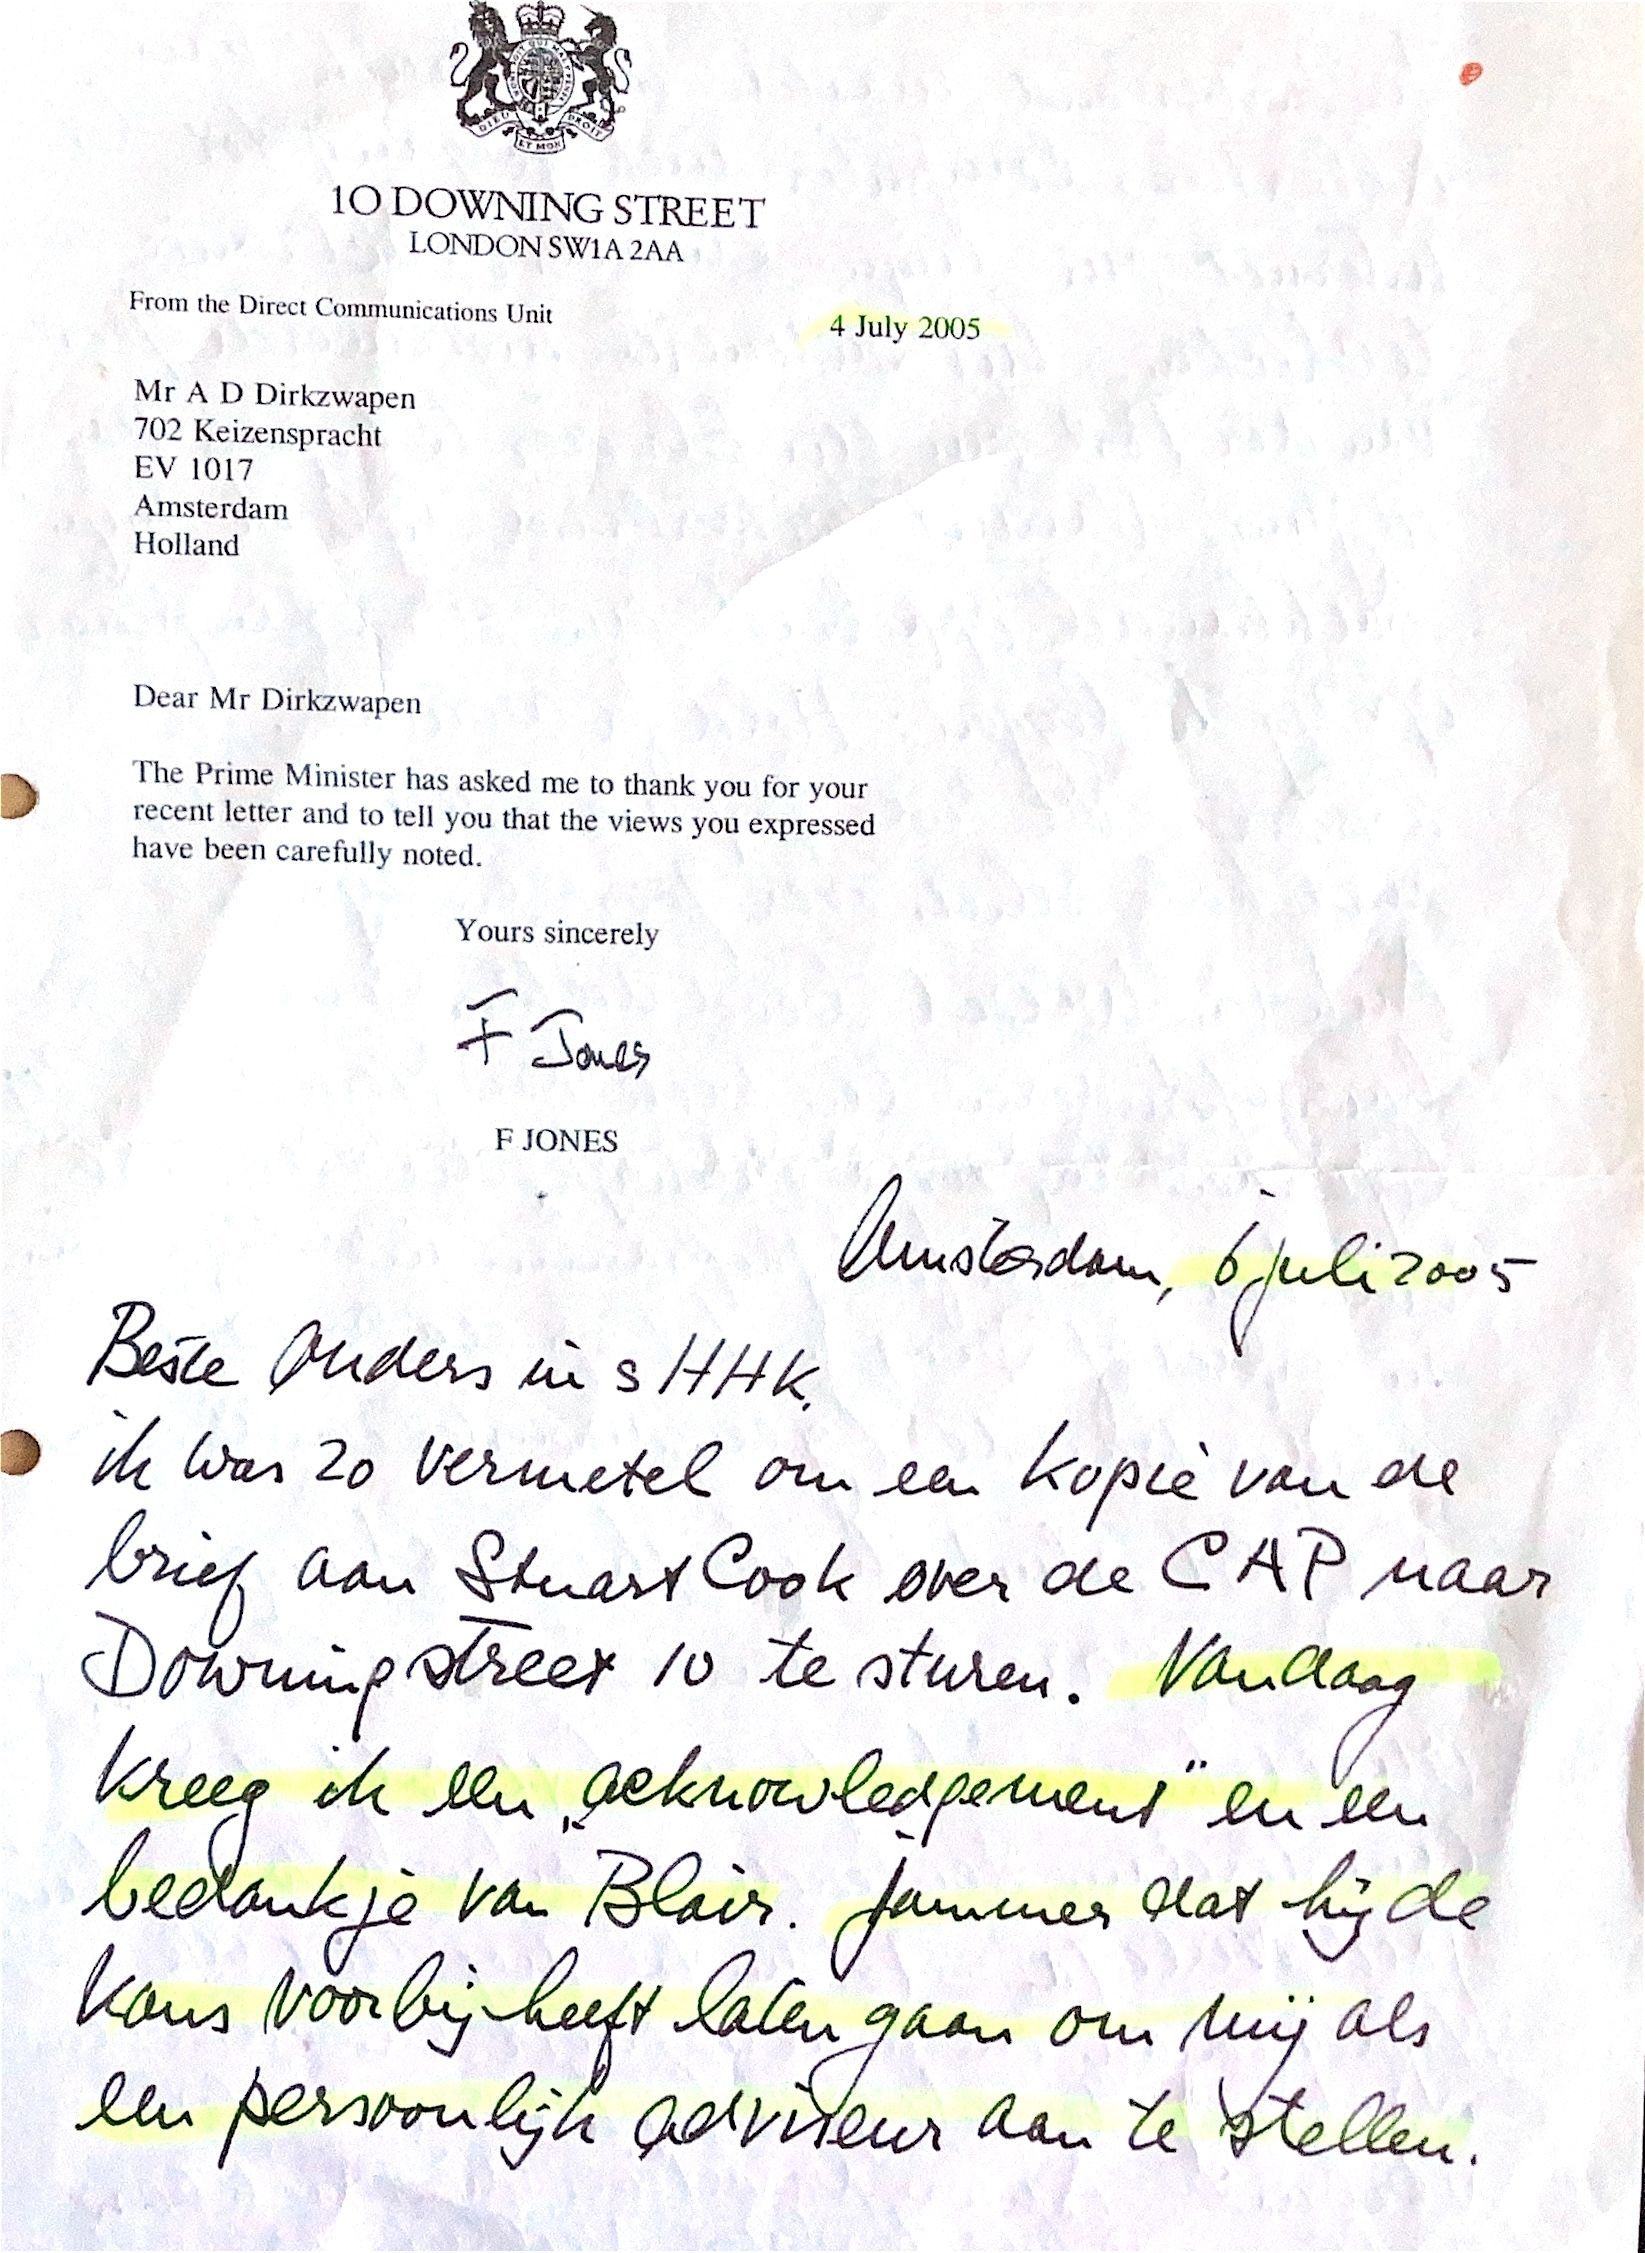 DIEU ET MON DROIT
10 DOWNING STREET
LONDON SW1A 2AA
From the Direct Communications Unit
4 July 2005
Mr A D Dirkzwapen
702 Keizenspracht
EV 1017
Amsterdam
Holland
Dear Mr Dirkzwapen
The Prime Minister has asked me to thank you for your
recent letter and to tell you that the views you expressed
have been carefully noted.
Yours sincerely
F Jones
F JONES
Amsterdam, 6 juli 2005
Beste Ouders in s HHK.
ik was zo vermetel om een kopie van de
brief aan Stuart Cook over de CAP naar
Downingstreet 10 te sturen. Vandaag
kreeg ik een „acknowledgement" en een
bedankje van Blair. jammer dat hij de
kans voorbij heeft laten gaan om mij als
een persoonlijk adviseur aan te stellen.